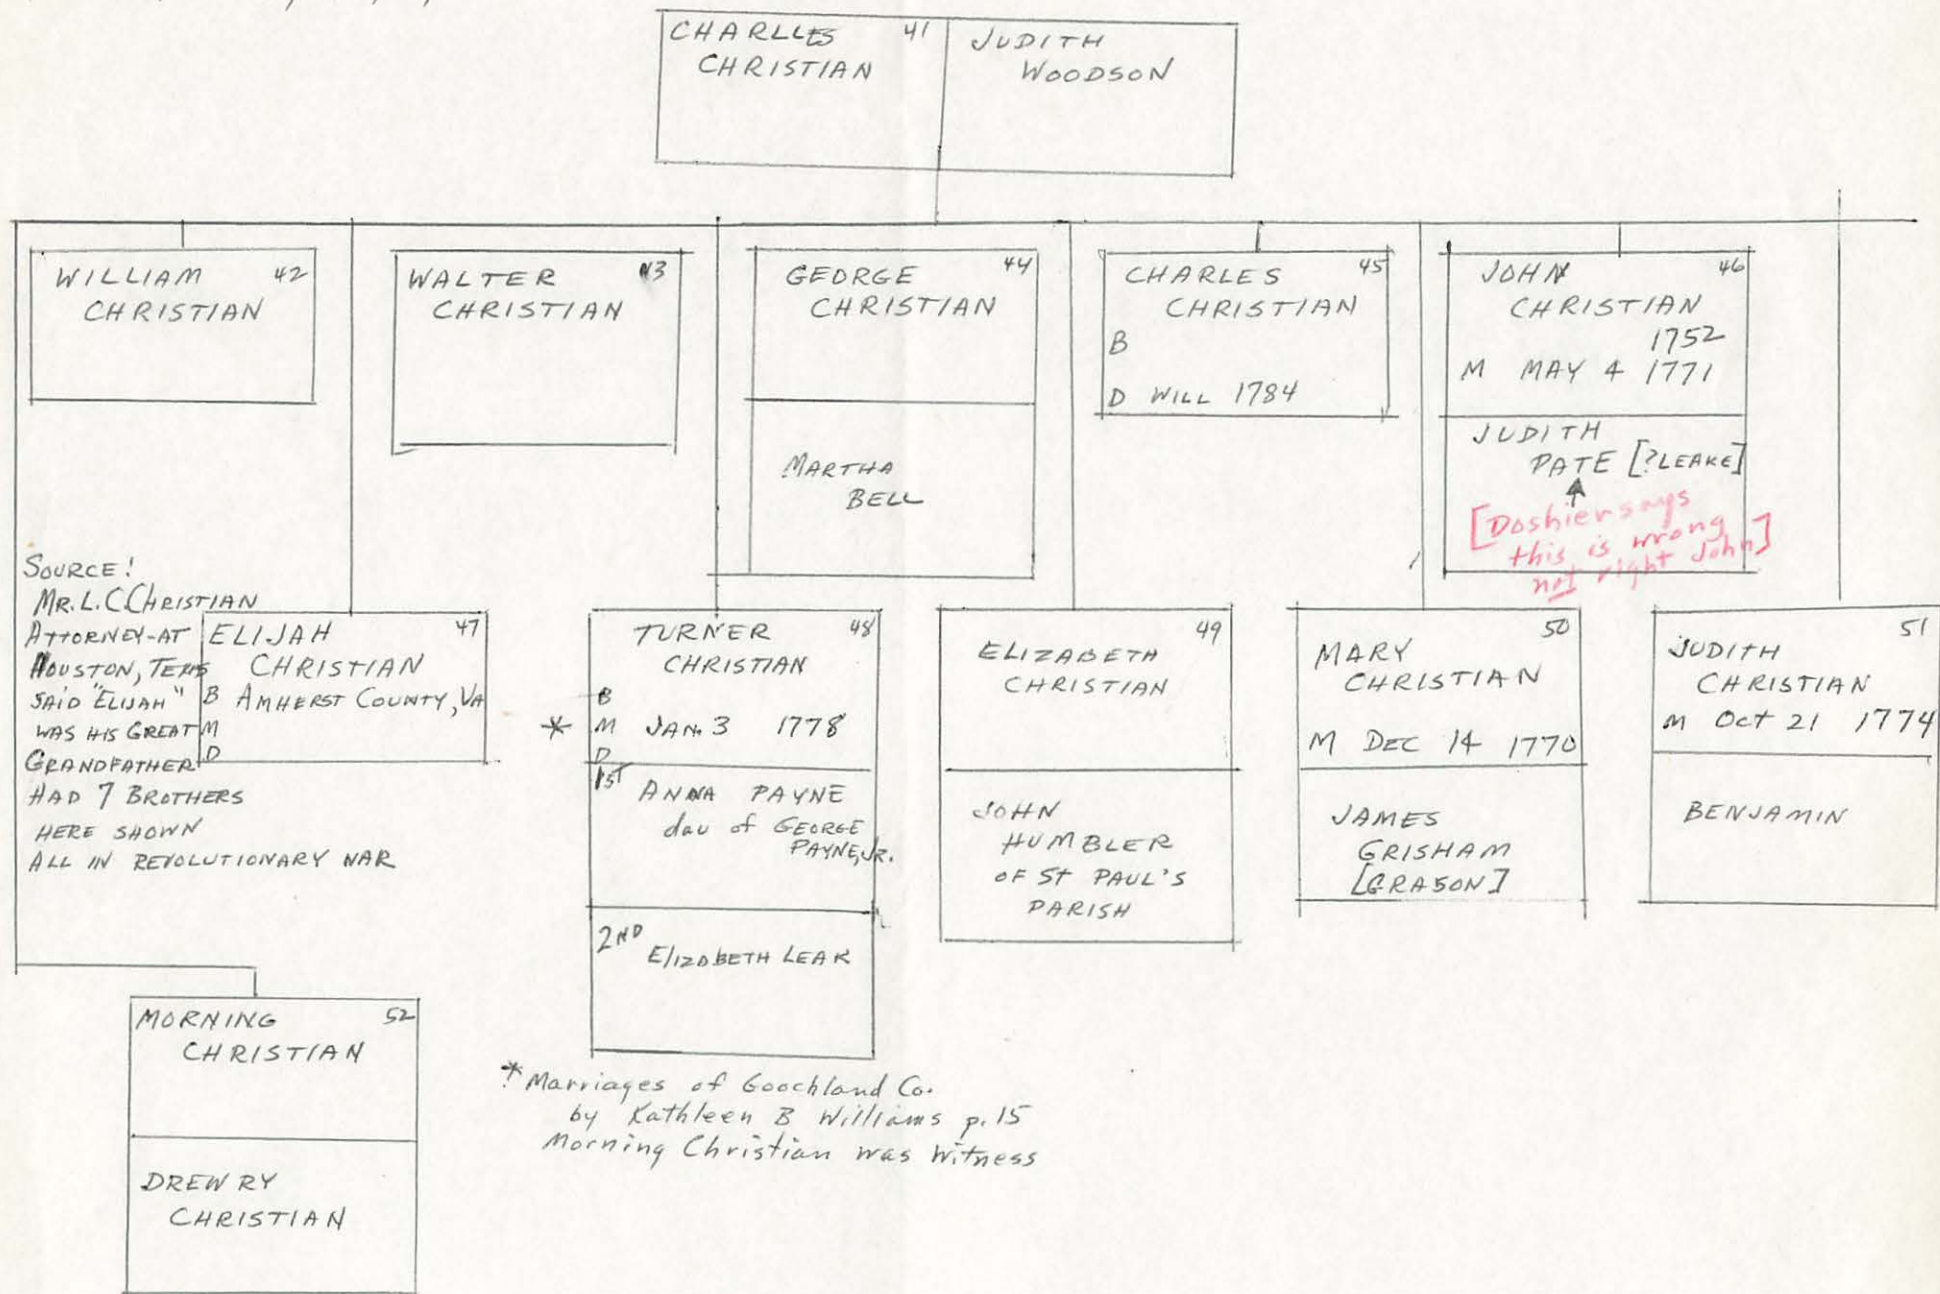 CHARLLES 41
CHRISTIAN
JUDITH
WOODSON
WILLIAM 42
CHRISTIAN
WALTER 43
CHRISTIAN
GEORGE 44
CHRISTIAN
MARTHA
BELL
CHARLES 45
CHRISTIAN
B
D WILL 1784
JOHN 46
CHRISTIAN
1752
M MAY 4 1771
JUDITH
PATE [?LEAKE]
[Doshier says
this is wrong
not right John]
SOURCE!
MR. L.C. CHRISTIAN
ATTORNEY-AT
HOUSTON, TEXAS
SAID "ELIJAH"
WAS HIS GREAT
GRANDFATHER
HAD 7 BROTHERS
HERE SHOWN
ALL IN REVOLUTIONARY WAR
ELIJAH 47
CHRISTIAN
B AMHERST COUNTY, VA
M
D
TURNER 48
CHRISTIAN
B
* M JAN. 3 1778
D
1ST ANNA PAYNE
dau of GEORGE
PAYNE, JR.
2ND ElizABETH LEAK
ELIZABETH 49
CHRISTIAN
JOHN
HUMBLER
OF ST PAUL'S
PARISH
MARY 50
CHRISTIAN
M DEC 14 1770
JAMES
GRISHAM
[GRASON]
JUDITH 51
CHRISTIAN
M Oct 21 1774
BENJAMIN
MORNING 52
CHRISTIAN
DREWRY
CHRISTIAN
* Marriages of Goochland Co.
by Kathleen B Williams p. 15
Morning Christian was Witness